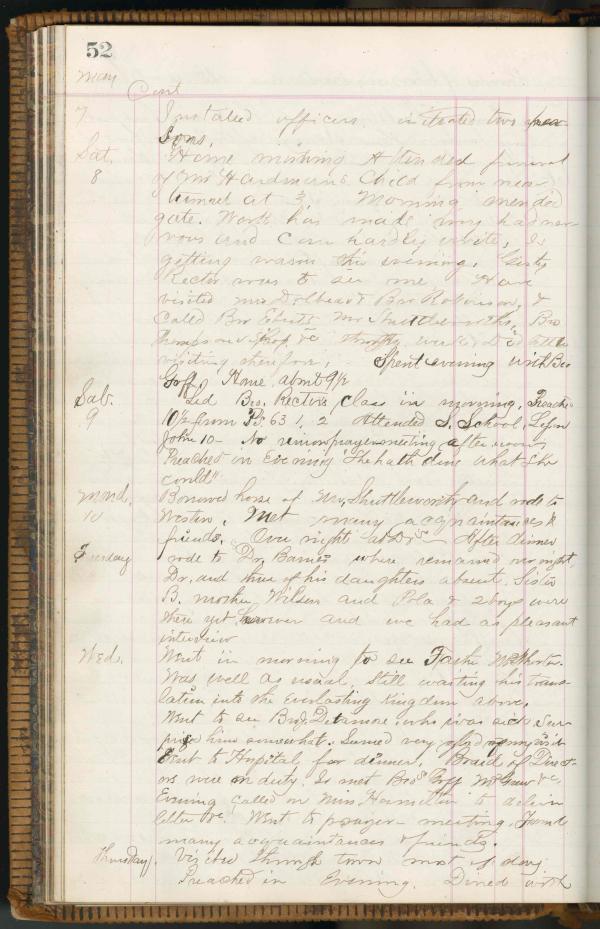 52
May Cont
7 Installed officers initiated two per-
sons.
Sat. Home morning Attended funeral
8 of Mr Hardman's Child from near
tunnel at 3. Morning mended
gate. Work has made my hand ner-
vous and can hardly write, Is
getting warm this evening. Sister
Rector was to see me. Have
visited Mrs & Bro Robinson, &
called Bro Mr Shuttleworths, Bro
Thompson Shop &c
visiting therefore. Spent evening with Bro
Goff, Home about 9½
Sab. Bro. Rectors Class in morning, Preach-
9 10½ from Ps. 63 1, 2 Attended S. School. Lesson
John 10 - No prayer meeting after noon
Preached in Evening "She hath done what She
could"
Mond. Borrowed horse of Mr. Shuttleworth and rode to
10 Weston. Met many acquaintances &
friends. Over night at Dr's - After dinner
Tuesday rode to Dr. Barnes where remained over night,
Dr. and three of his daughters absent. Sister
B. mother Wilson and & 2 boys were
there yet however and we had as pleasant
interview
Wed. Went in morning to see Father
Was well as usual. Still waiting his trans-
lation into the Everlasting Kingdom above.
Went to see Bro. Detamore who was sick Sur-
prise him somewhat. Seemed very glad of my visit
Went to Hospital for dinner. Board of Direct-
ors were on duty. So met Bros Goff &c.
Evening called on Miss Hamilton to deliver
letter &c. Went to prayer-meeting. Found
many acquaintances & friends.
Thursday. Visited through town most of day
Preached in Evening. Dined with